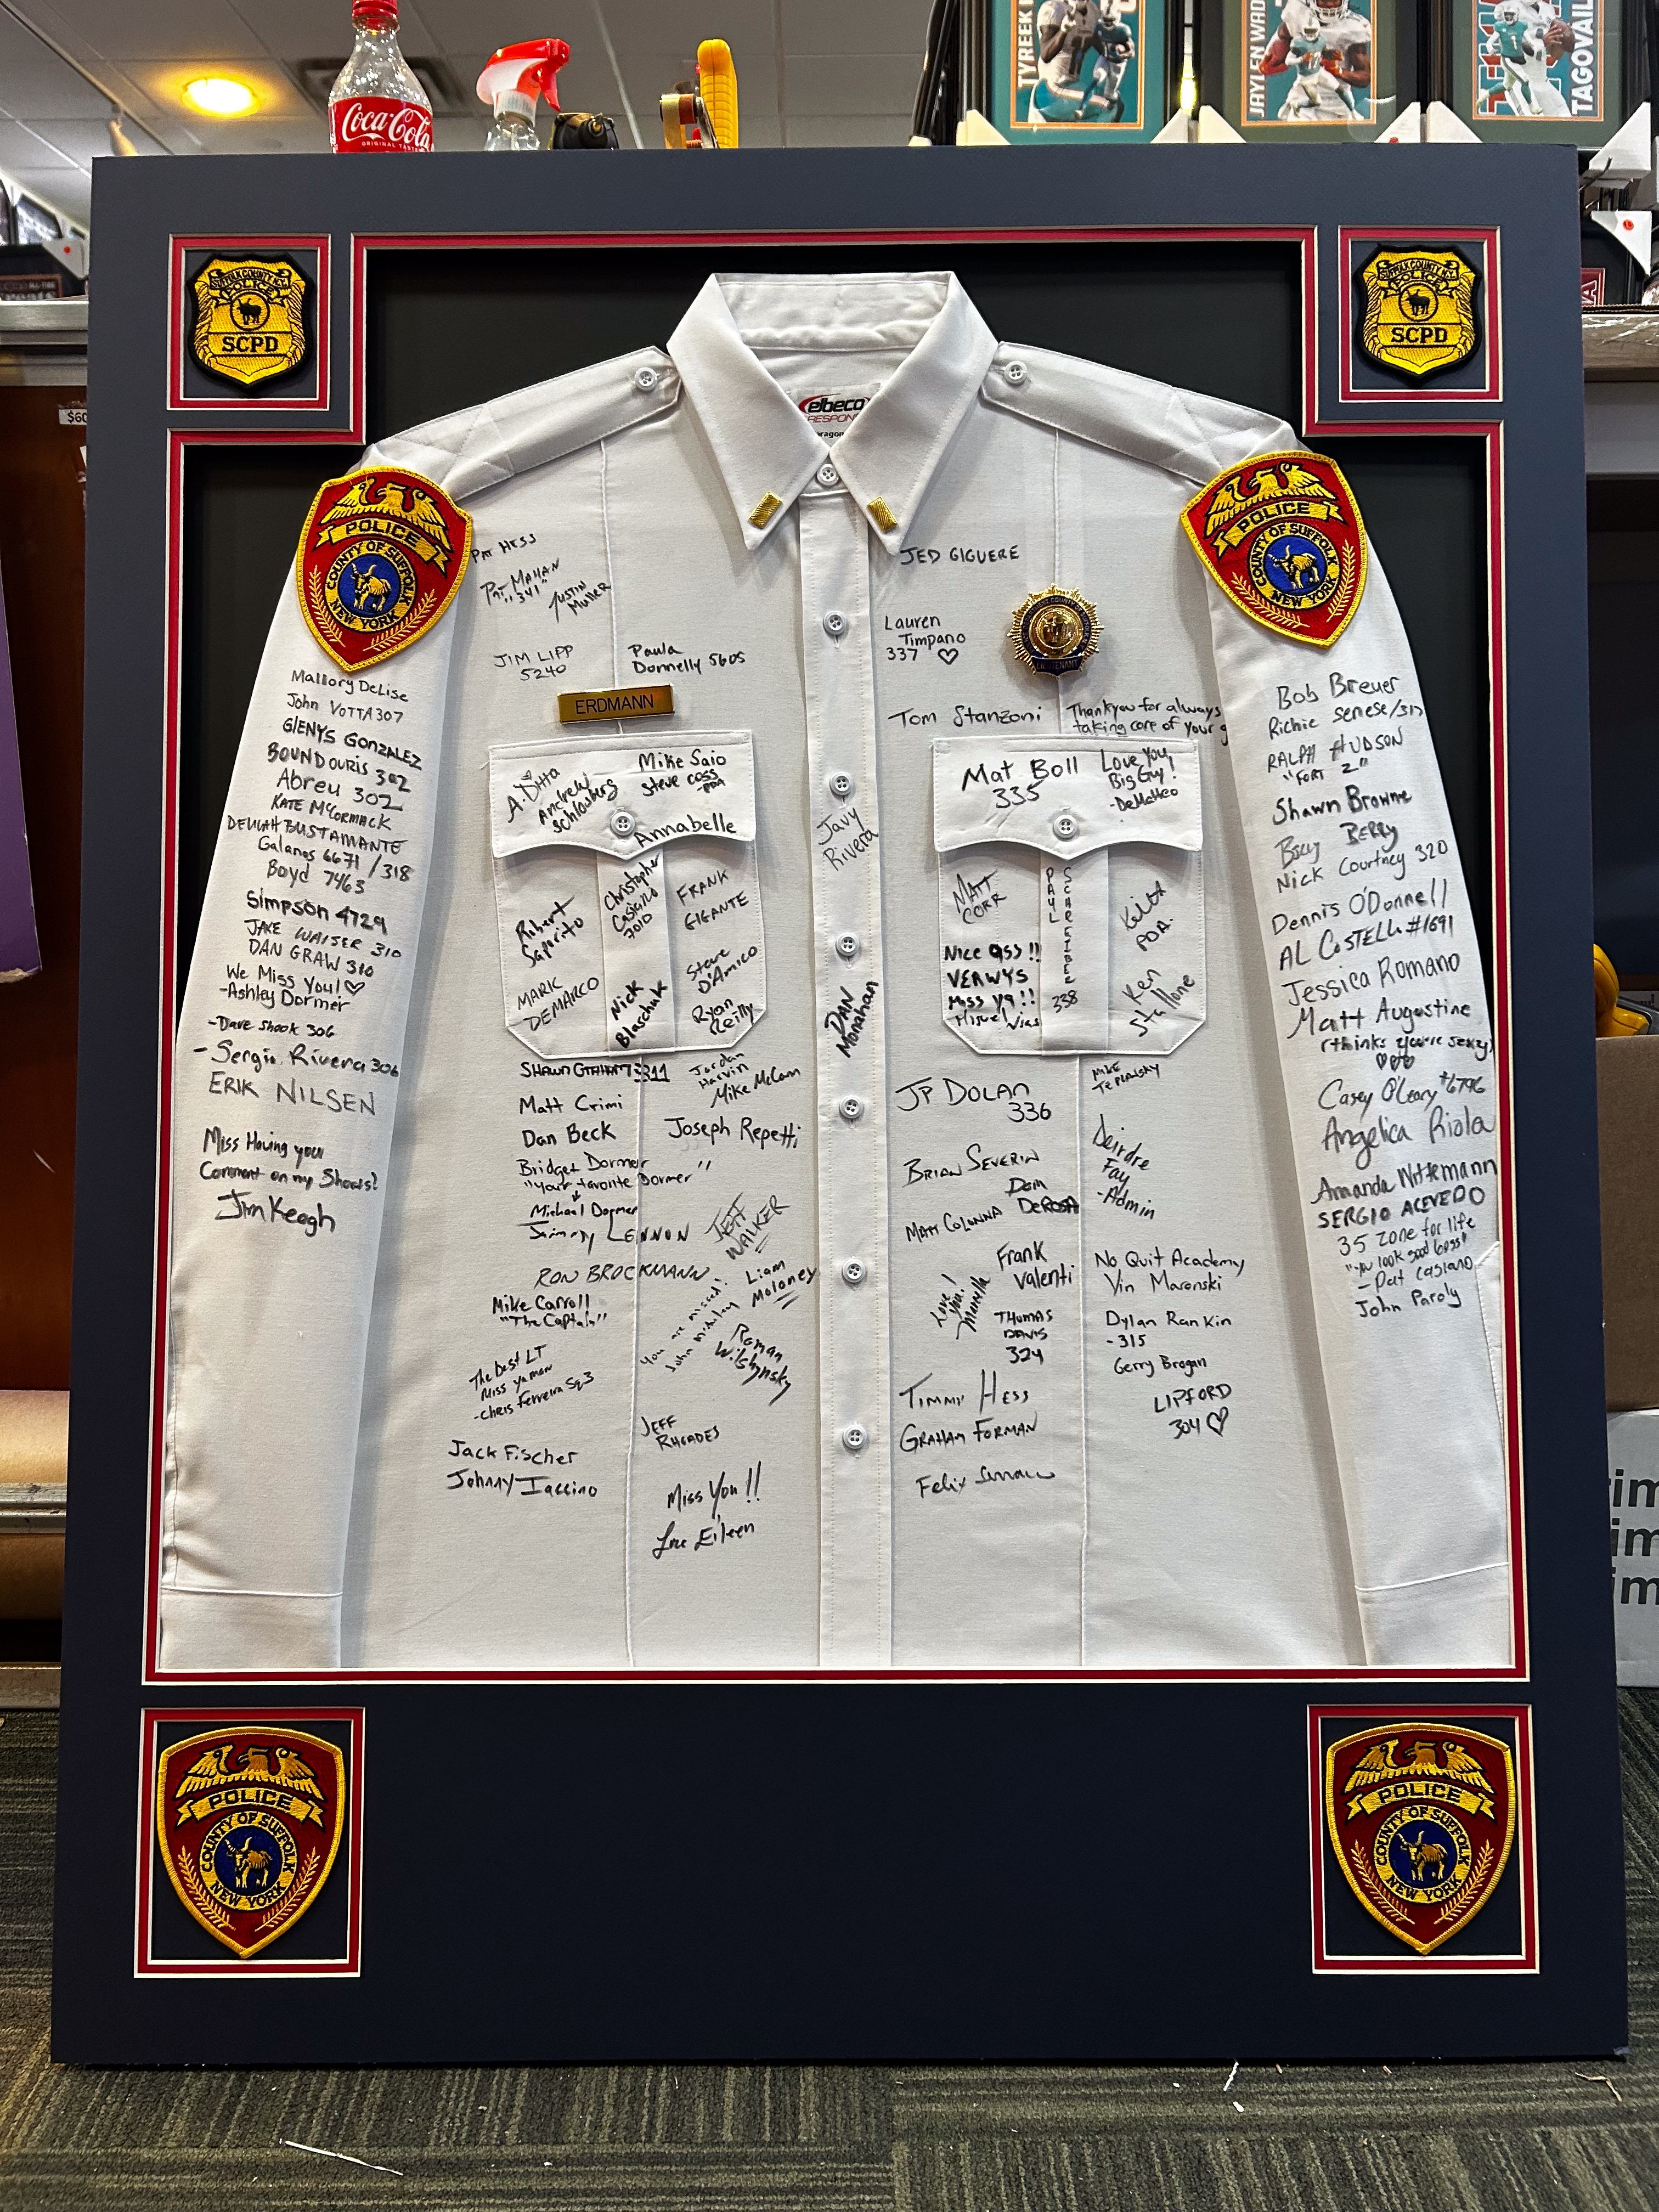 Coca-Cola
ORIGINAL TASTE
TYREEK
JAYLEN WAD
TAGOVAIL
$60
SUFFOLK COUNTY N.Y.
POLICE
SCPD
SUFFOLK COUNTY N.Y.
POLICE
SCPD
elbeco
RESPON
aragon
POLICE
COUNTY OF SUFFOLK
NEW YORK
POLICE
COUNTY OF SUFFOLK
NEW YORK
LIEUTENANT
ERDMANN
Mallory DeLise
John VOTTA 307
GLENYS GONZALEZ
BOUNDOURIS 302
Abreu 302
KATE McCORMACK
DELILAH BUSTAMANTE
Galanos 6671 / 318
Boyd 7463
Simpson 4729
JAKE WAISER 310
DAN GRAW 310
We Miss You! ♡
-Ashley Dormer
-Dave Shook 306
-Sergio Rivera 306
ERIK NILSEN
Miss Having you
Comment on my Shoes!
Jim Keogh
PAT HESS
PAT MAHAN
"341"
JUSTIN
Muller
JIM LIPP
5240
Paula
Donnelly 5605
A. Ditta
Andrew
Schlosberg
Mike Saio
Steve coss
-PDA
Annabelle
Robert
Saporito
Christopher
Casigllo
7010
FRANK
GIGANTE
MARK
DEMARCO
Nick
Blaschuk
Steve
D'Amico
Ryan
Reilly
SHAWN GRAHAM 3311
Jordan
Harvin
Mike McCam
Matt Crimi
Dan Beck
Joseph Repetti
Bridget Dormer
"your favorite Dormer"
Michael Dormer
Jimmy LENNON
JEFF
WALKER
RON BROCKMANN
Liam
Moloney
Mike Carroll
"The Captain"
you are missed!
John
Roman
Wilshynsky
The Best LT
Miss ya man
-Chris Ferreira Sq3
JEFF
RHOADES
Jack Fischer
Johnny Iaccino
Miss You!!
Love Eileen
Javy
Rivera
DAN
Monahan
JED GIGUERE
Lauren
Timpano
337 ♡
Tom Stanzoni
Thankyou for always
taking care of your g
Mat Boll
335
Love You
Big Guy!
-DeMatteo
MATT
CORR
PAUL
SCHREIBER
338
Keith
PDA.
Nice ass!!
VERWYS
Miss ya!!
Ken
JP DOLAN
336
MIKE
TEPLANSKY
BRIAN SEVERIN
Dom
DeROSA
Deirdre
Fay
-Admin
MATT COLONNA
Frank
Valenti
No Quit Academy
Vin Maronski
Love
You!
THOMAS
DAVIS
324
Dylan Rankin
-315
Gerry Brogan
TIMMY HESS
LIPFORD
304 ♡
GRAHAM FORMAN
Felix
Bob Breuer
Richie Senese/317
RALPH HUDSON
"FORT 2"
Shawn Browne
BERRY
Nick Courtney 320
Dennis O'Donnell
AL COSTELLO #1691
Jessica Romano
Matt Augustine
(thinks you're sexy)
♡♡♡
Casey O'Leary #6796
Angelica Riola
Amanda Wittemann
SERGIO ACEVEDO
35 Zone for life
"you look good boss"
-Pat Casiano
John Paroly
POLICE
COUNTY OF SUFFOLK
NEW YORK
POLICE
COUNTY OF SUFFOLK
NEW YORK